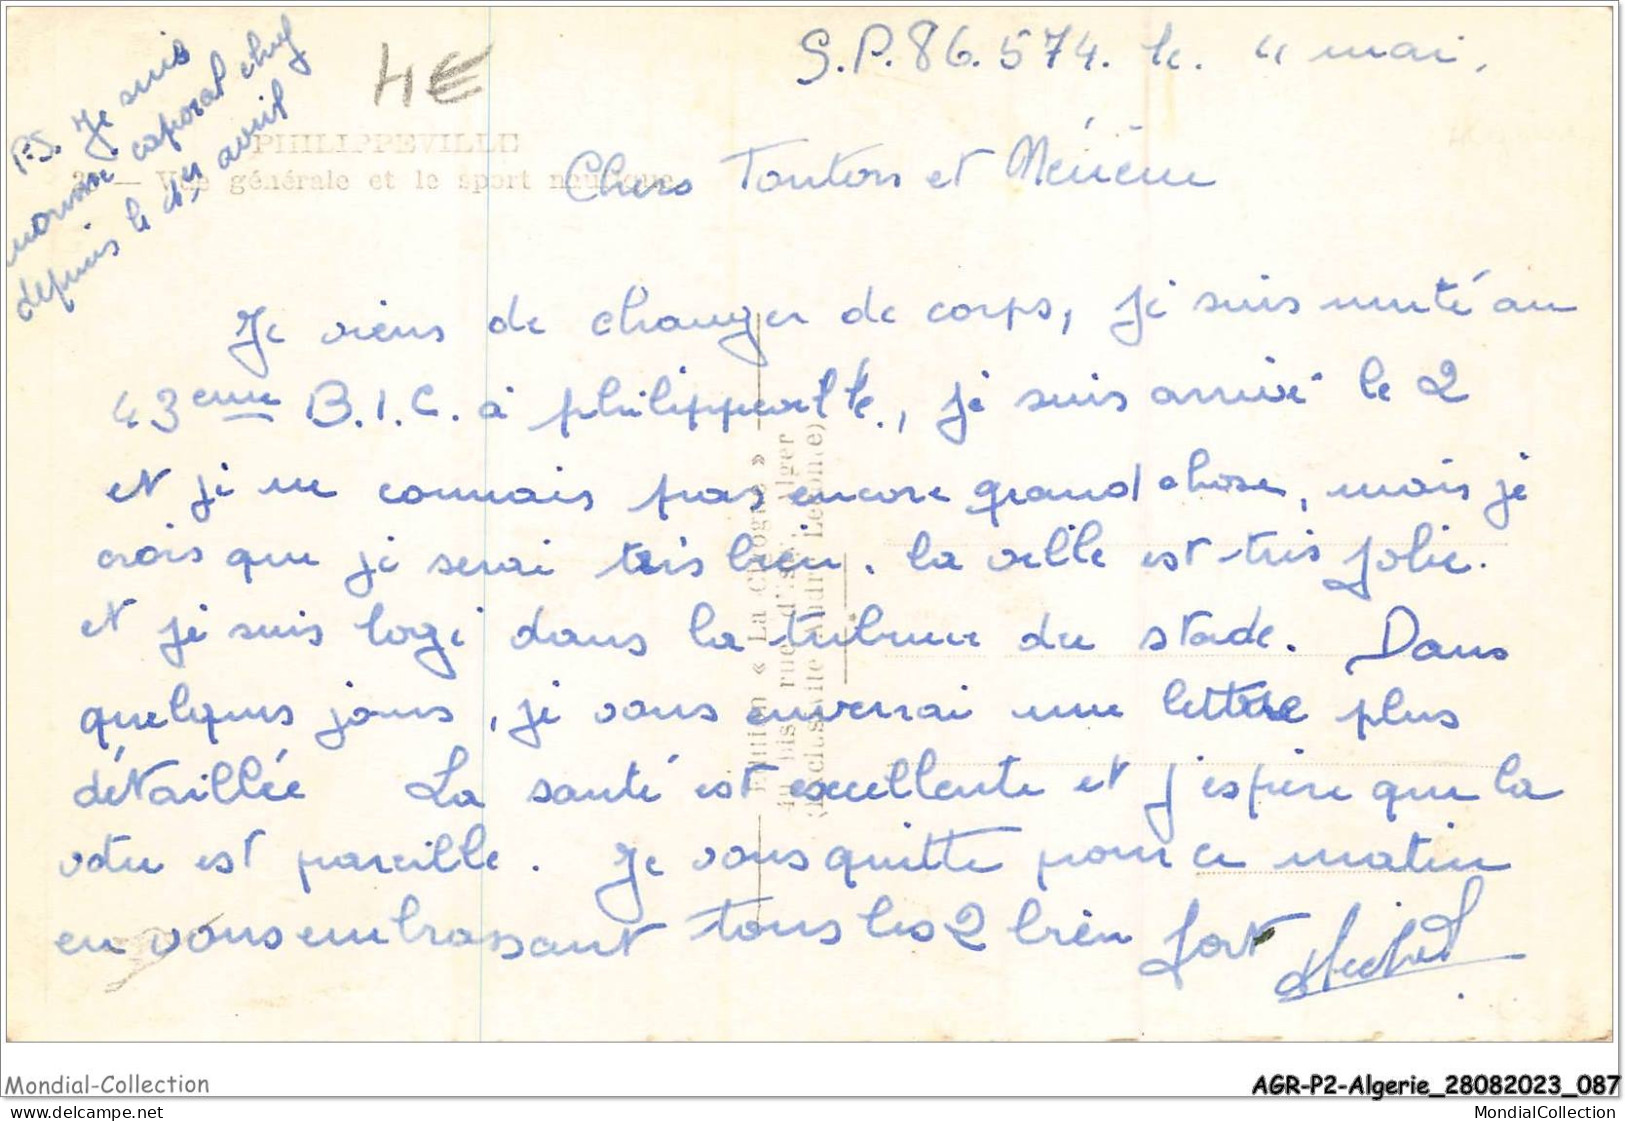 S.P. 86.574. le. 4 mai.
P.S. Je suis
nommé caporal chef
depuis le 1er avril
4€
PHILIPPEVILLE
— Vue générale et le sport nautique
Chers Tonton et Mémène
Je viens de changer de corps, je suis muté au
43eme B.I.C. à philippeville, je suis arrivé le 2
et je ne connais pas encore grand chose, mais je
crois que je serai très bien. la ville est très jolie.
et je suis logé dans la tribune du stade. Dans
quelques jours, je vous enverrai une lettre plus
détaillée La santé est excellente et j'espère que la
votre est pareille. Je vous quitte pour ce matin
en vous embrassant tous les 2 bien fort
Michel
Edition « La Cigogne »
bis, rue d'Isly, Alger
(Exclusivité André Leconte)
Mondial-Collection
AGR-P2-Algerie_28082023_087
www.delcampe.net
MondialCollection